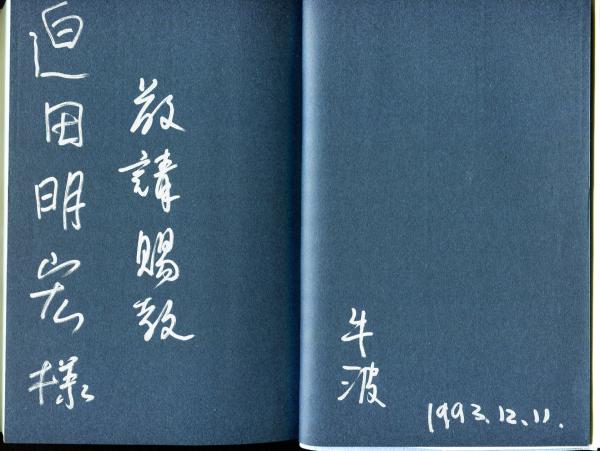 迫田明宏様
敬請賜教
牛波
1993.12.11.